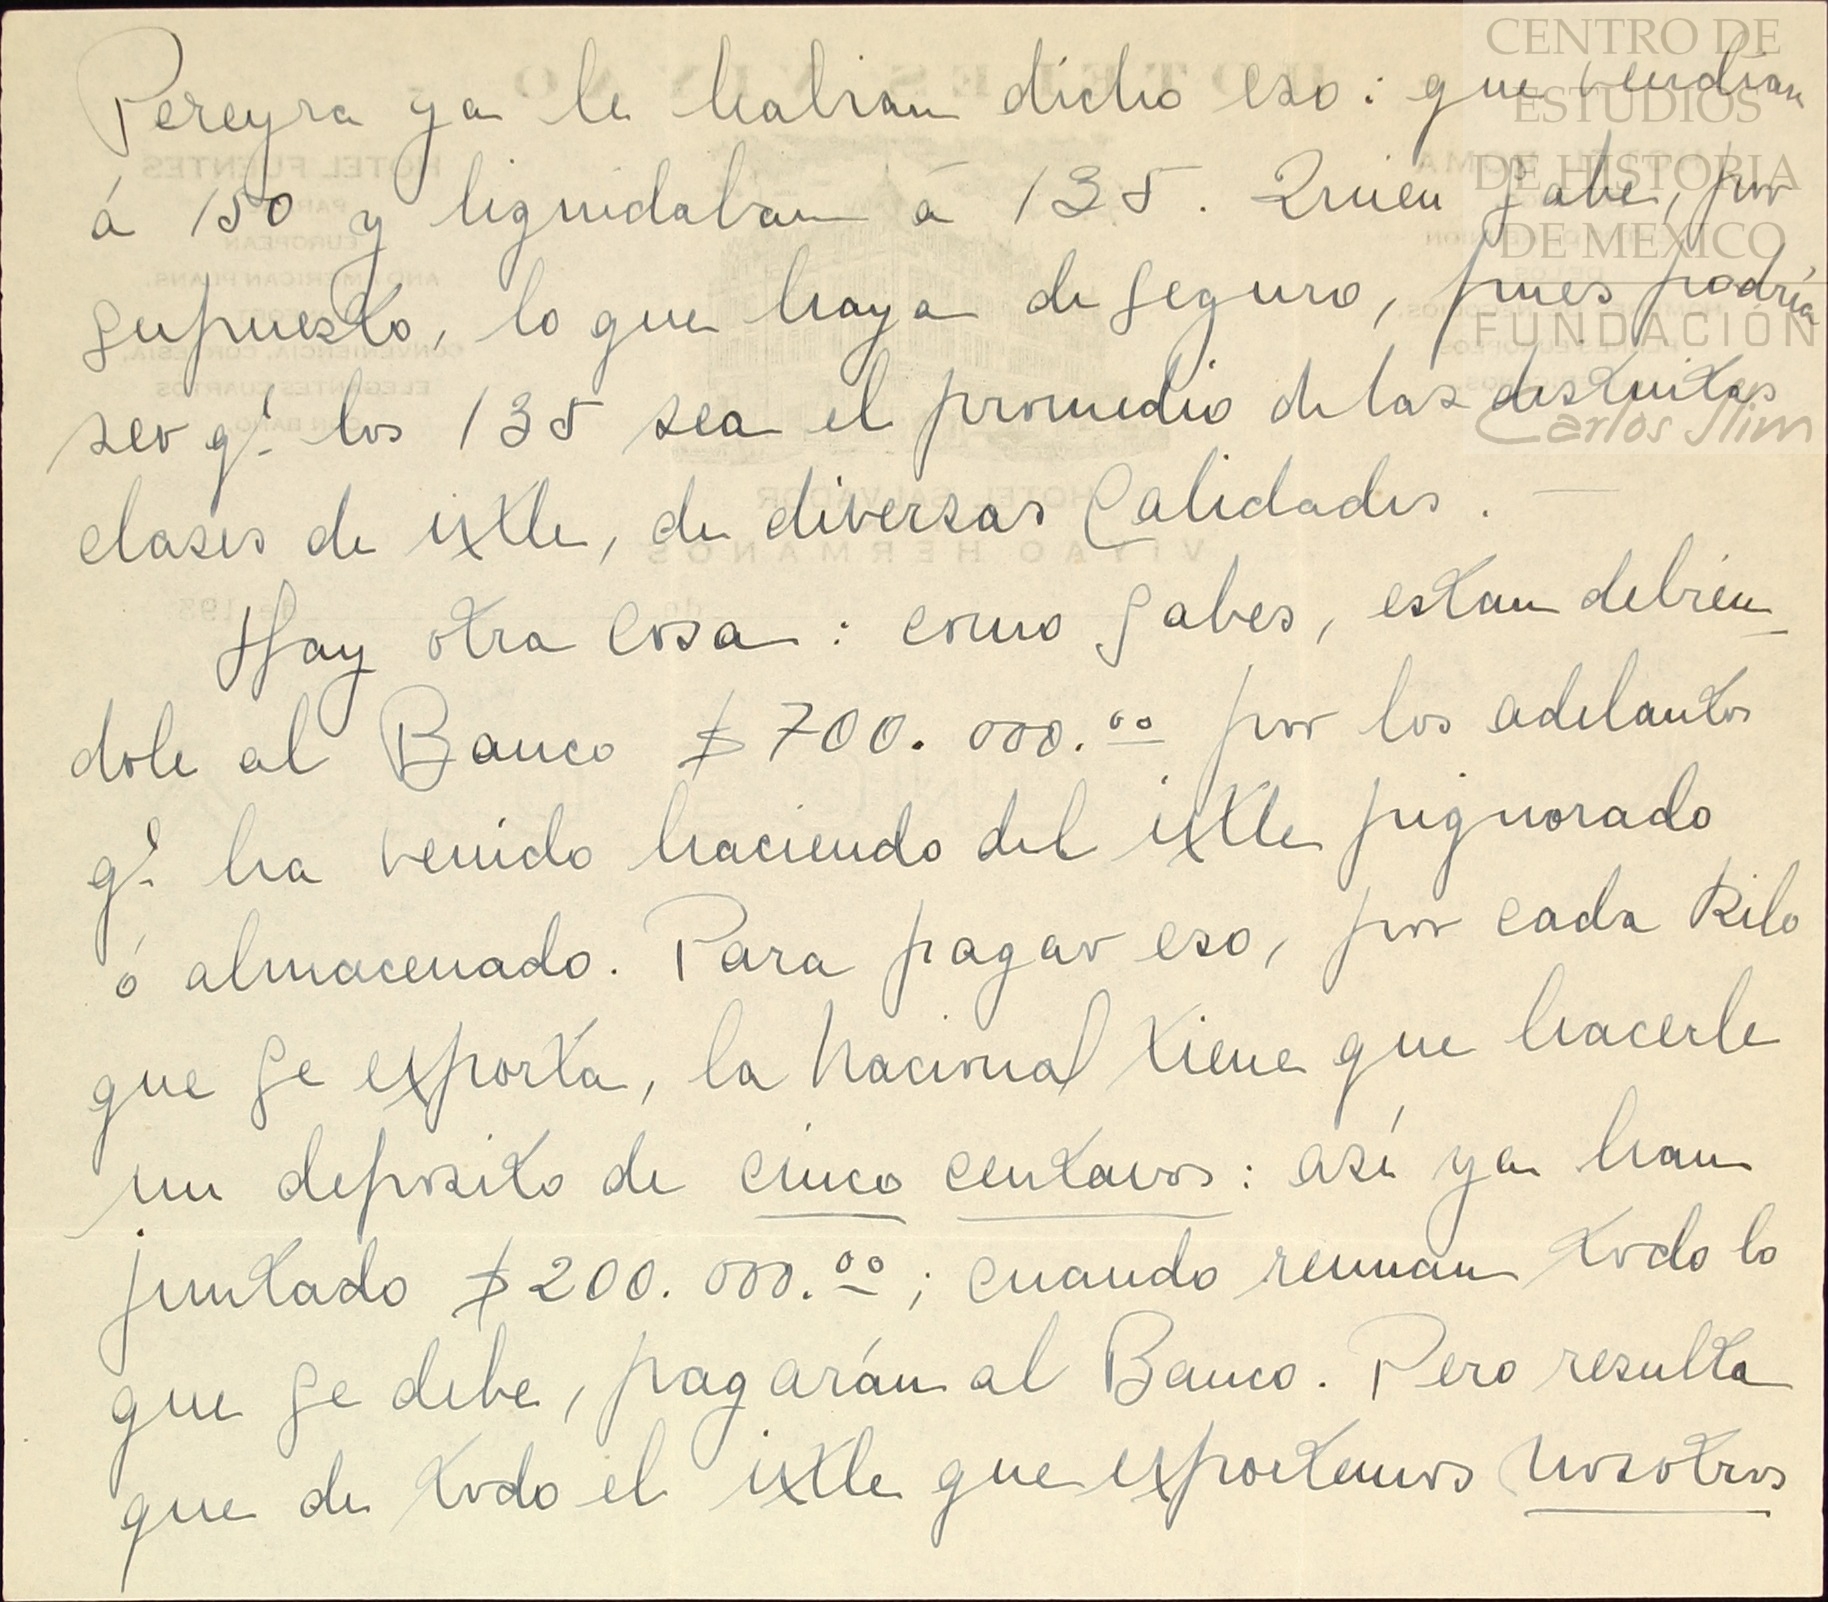 Pereyra ya le habian dicho eso: que vendian
á 150 y liquidaban á 135. Quien sabe, por
supuesto, lo que haya de seguro, pues podría
ser q.e los 135 sea el promedio de las distintas
clases de ixtle, de diversas Calidades. —
Hay otra cosa: como sabes, estan debien-
dole al Banco $700.000.00 por los adelantos
q.e ha venido haciendo del ixtle pignorado
ó almacenado. Para pagar eso, por cada Kilo
que se exporta, la Nacional tiene que hacerle
un deposito de cinco centavos: así ya han
juntado $200.000.00; cuando reunan todo lo
que se debe, pagarán al Banco. Pero resulta
que de todo el ixtle que exportemos nosotros
CENTRO DE
ESTUDIOS
DE HISTORIA
DE MEXICO
FUNDACIÓN
Carlos Slim